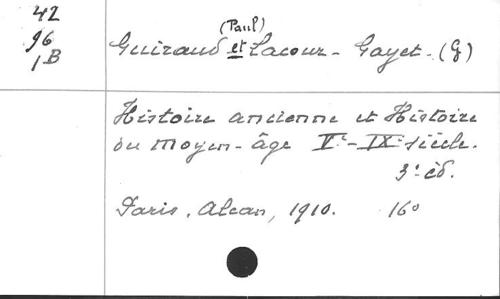 42
96
1B
(Paul)
Guiraud et Lacour-Gayet. (G)
Histoire ancienne et Histoire
du Moyen-âge Ve-IXe siècle.
3e éd.
Paris, Alcan, 1910. 16o